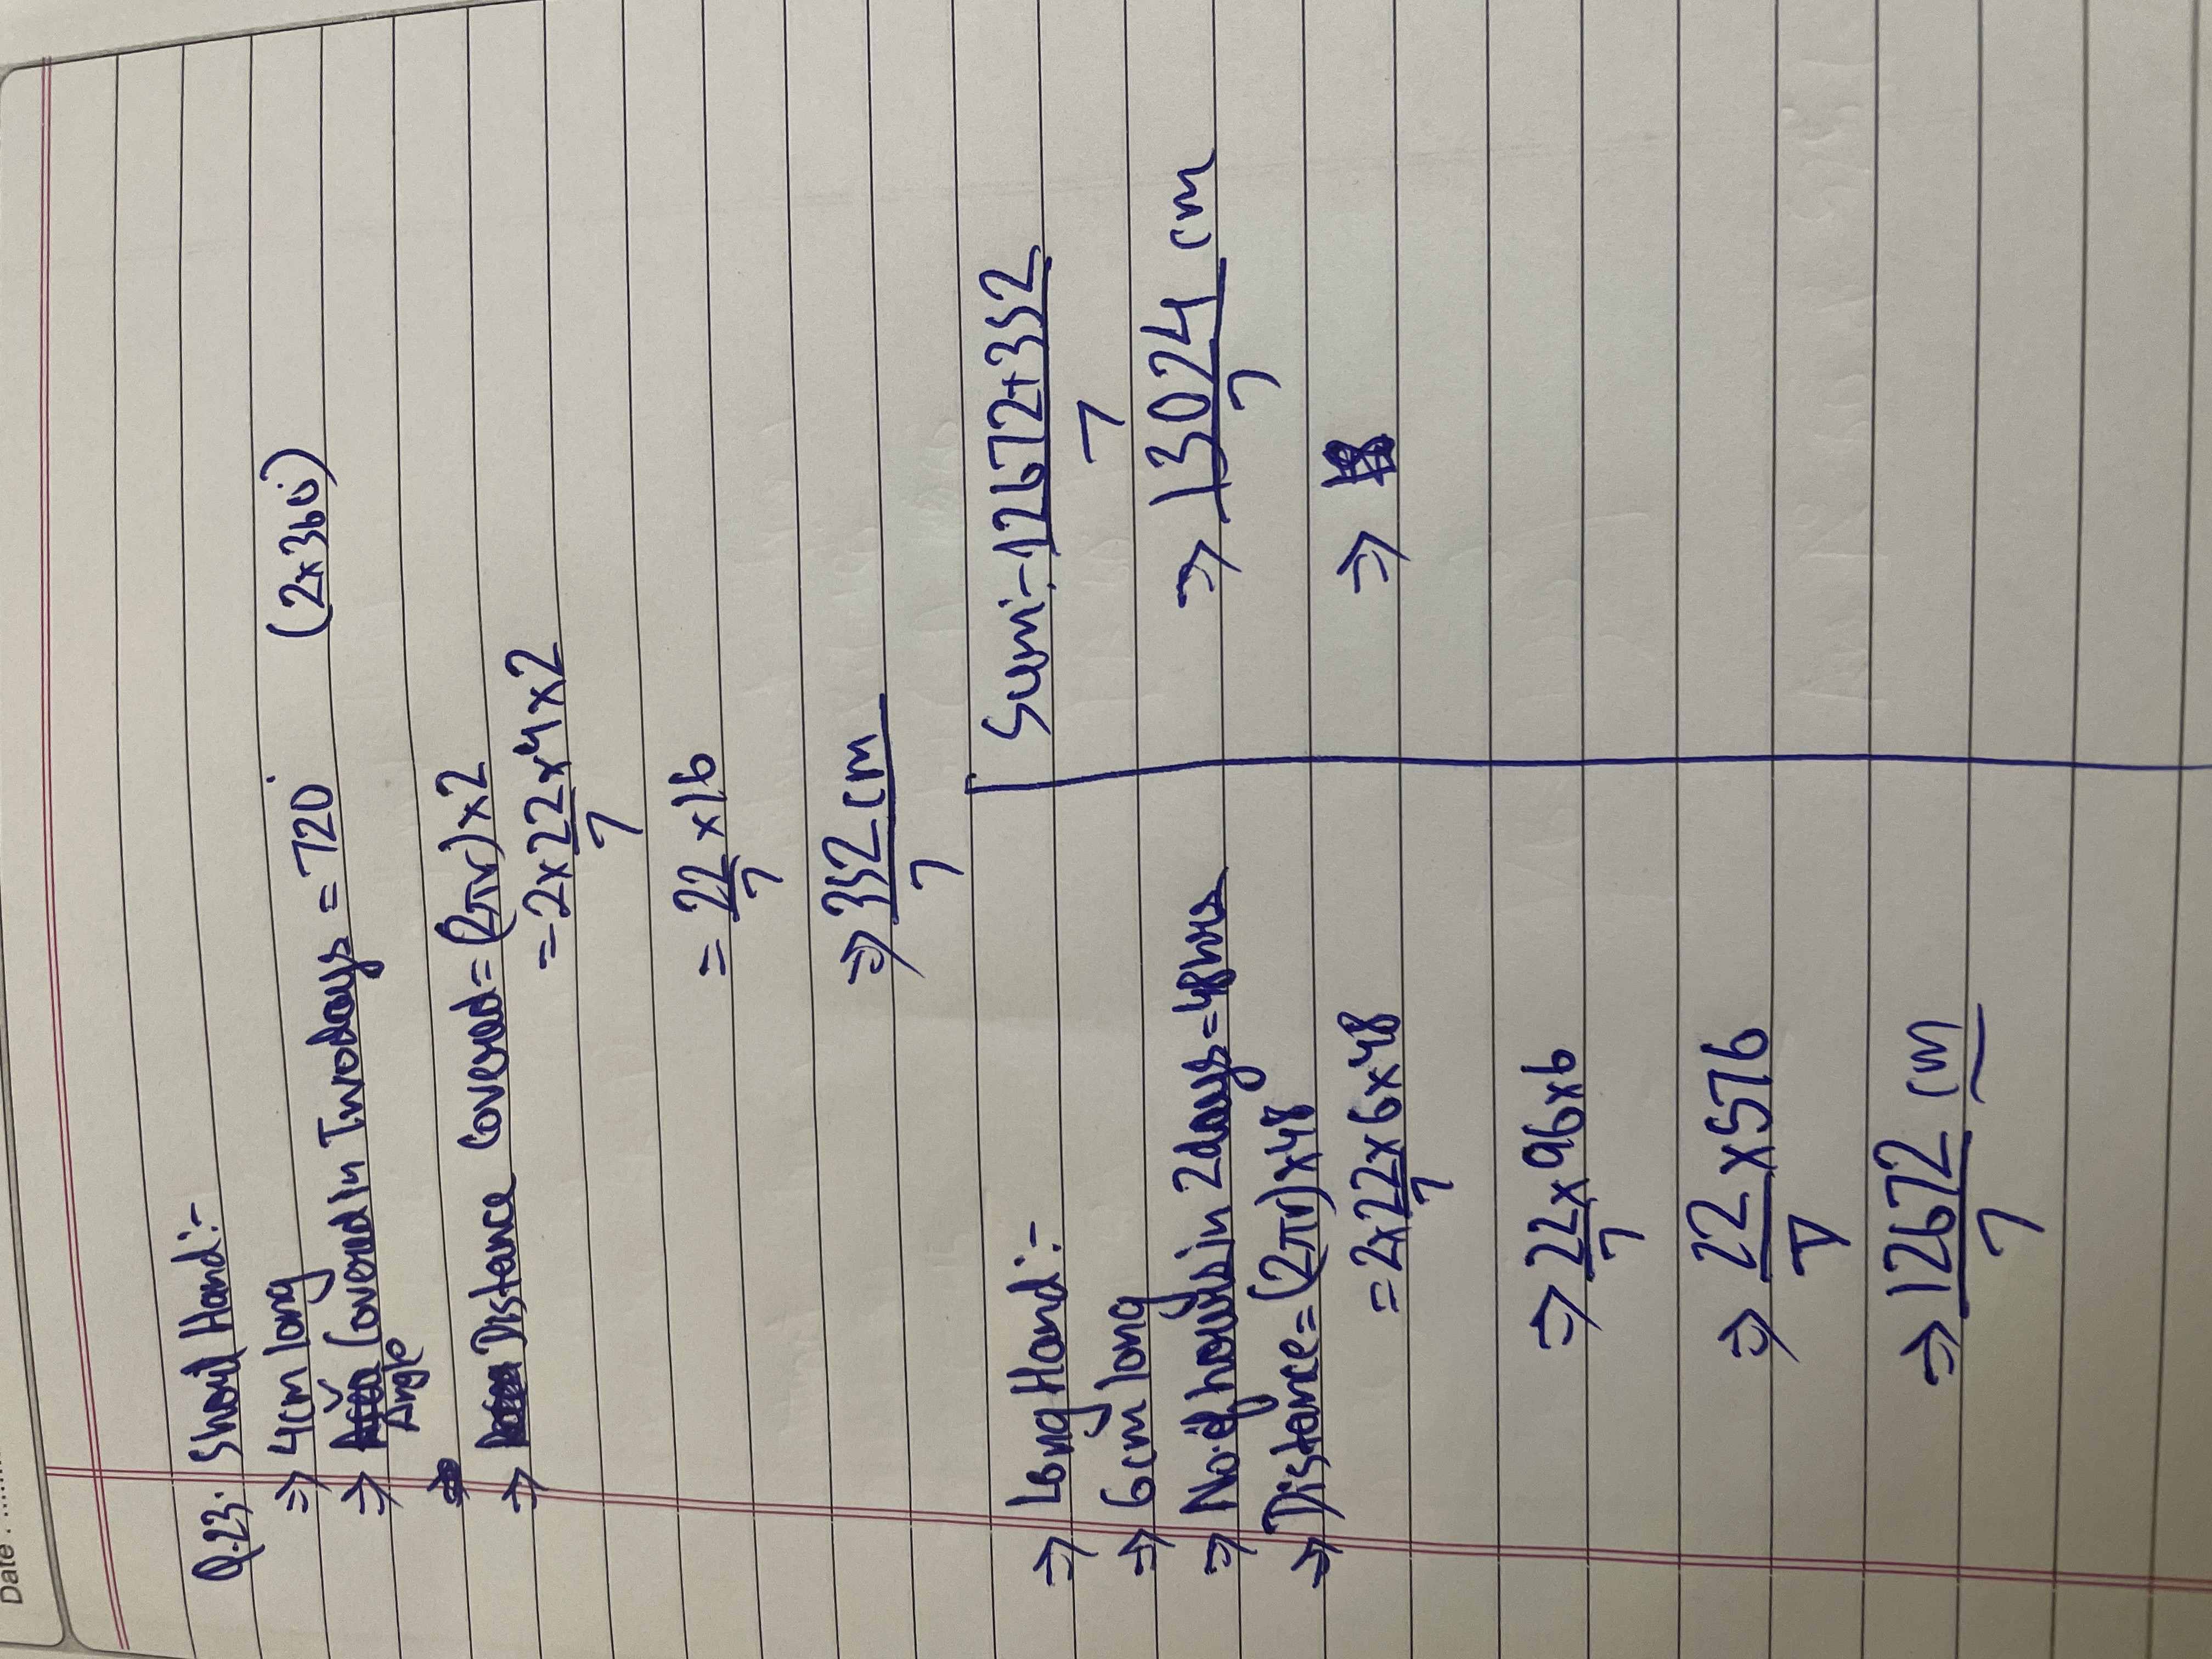 Date : ........
Q.23. Short Hand:-
⇒ 4cm long
⇒ Covered In Two days = 720° (2×360°)
Angle
⇒ Distance Covered = (2πr)×2
= 2×22/7×4×2
= 22/7×16
⇒ 352/7 cm
⇒ Long Hand:-
⇒ 6cm long
⇒ No. of hours in 2 days = 48 hrs
⇒ Distance = (2πr)×48
= 2×22/7×6×48
⇒ 22/7×96×6
⇒ 22/7×576
⇒ 12672/7 cm
Sum:- 12672+352/7
⇒ 13024/7 cm
⇒